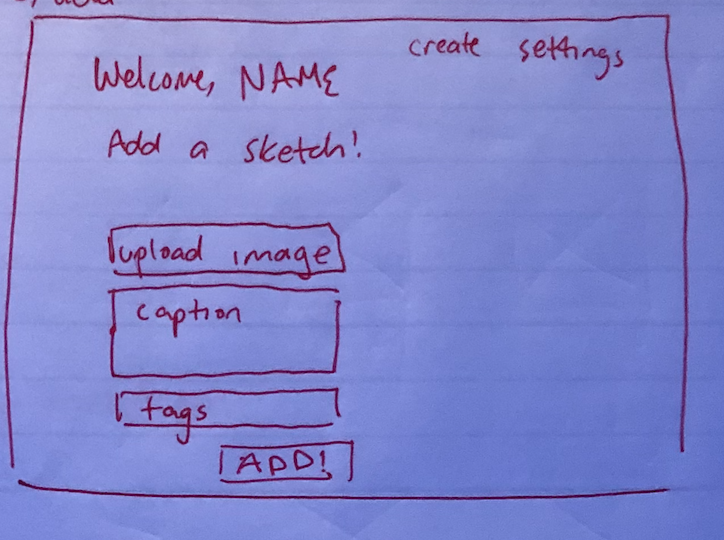 create settings
Welcome, NAME
Add a sketch!
upload image
caption
tags
ADD!